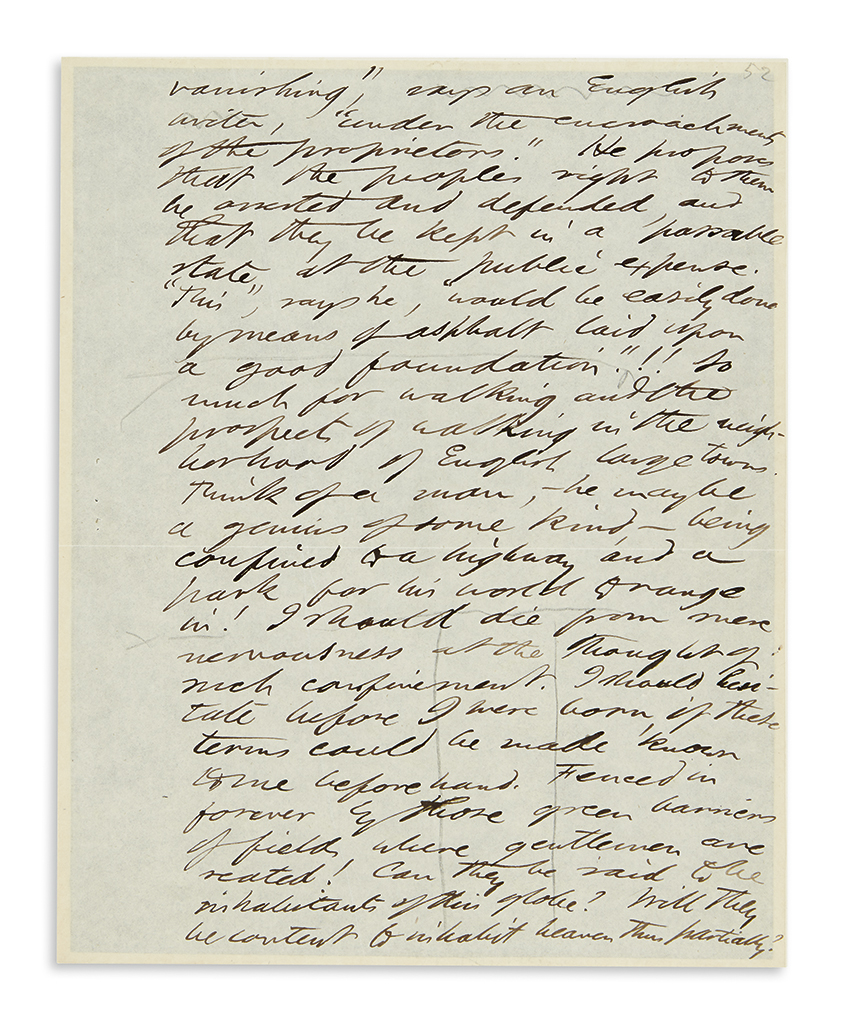 52
vanishing", says an English
writer, "under the encroachments
of the proprietors." He proposes
that the people's right to them
be asserted and defended, and
that they be kept in a passable
state, at the public expense.
"This", says he, "would be easily done
by means of asphalt laid upon
a good foundation."!! So
much for walking and the
prospects of walking in the neigh-
borhood of English large towns.
Think of a man,—he may be
a genius of some kind—being
confined to a highway and a
park for his world to range
in! I should die from mere
nervousness at the thought of
such confinement. I should hesi-
tate before I were born, if these
terms could be made known
to me beforehand. Fenced in
forever by those green barriers
of fields, where gentlemen are
seated! Can they be said to be
inhabitants of this globe? Will they
be content to inhabit heaven thus partially?